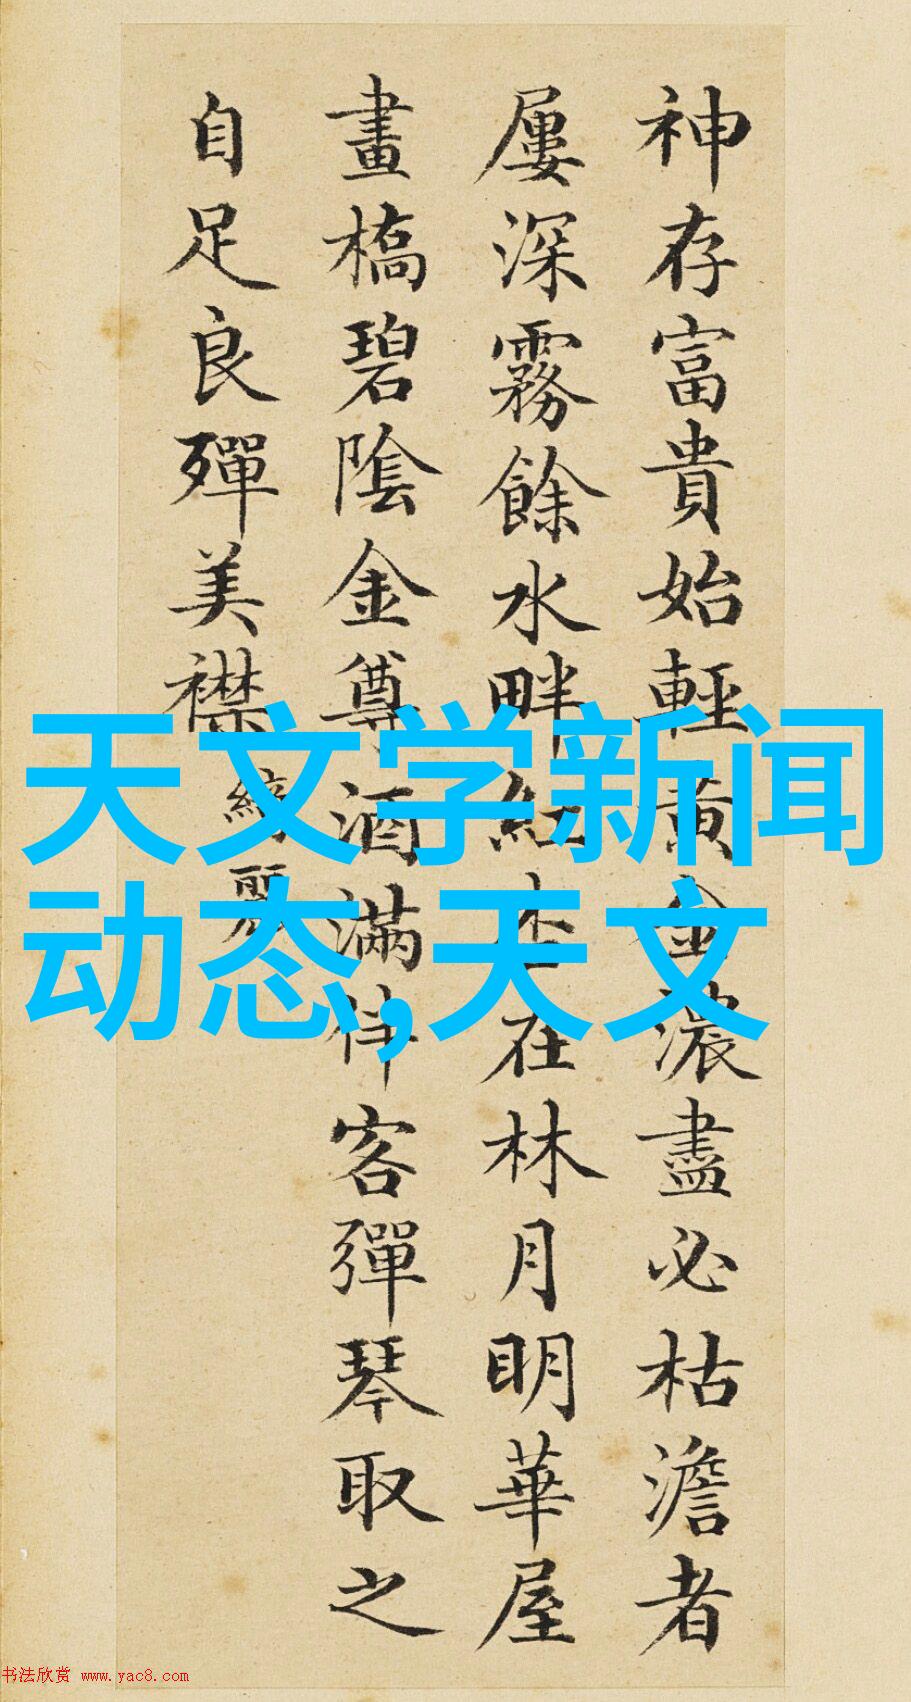 神存富貴始輕黄金濃盡必枯澹者
屢深霧餘水畔紅杏在林月明華屋
畫橋碧陰金尊酒滿伴客彈琴取之
自足良殫美襟
綺麗
天文学新闻
动态,天文
书法欣赏 www.yac8.com